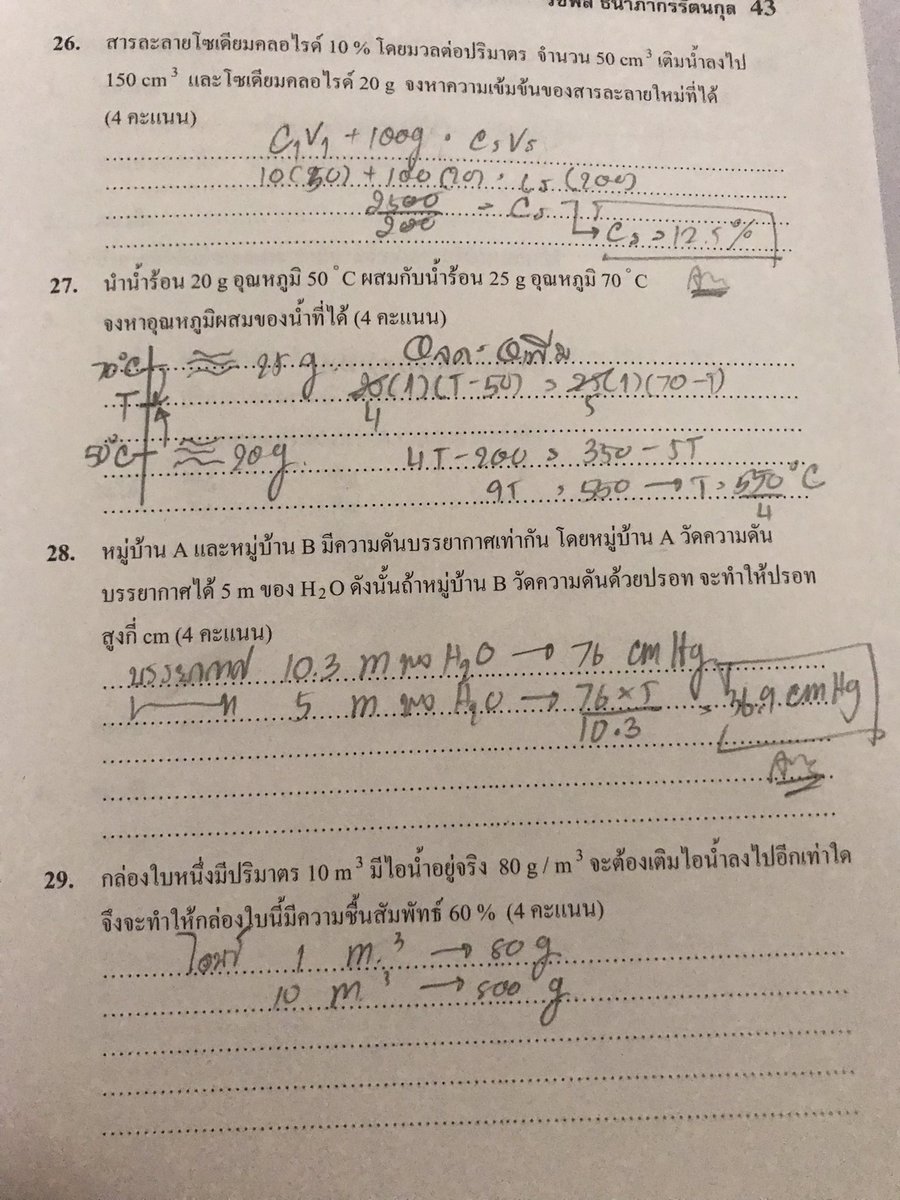 วชิพล ธนาภากรรัตนกุล 43
26. สารละลายโซเดียมคลอไรด์ 10 % โดยมวลต่อปริมาตร จำนวน 50 cm³ เติมน้ำลงไป
150 cm³ และโซเดียมคลอไรด์ 20 g จงหาความเข้มข้นของสารละลายใหม่ที่ได้
(4 คะแนน)
C₁V₁ + 100g = CsVs
10(50) + 100(20) = Cs(200)
2500/200 = Cs
Cs = 12.5%
Ans
27. นำน้ำร้อน 20 g อุณหภูมิ 50 °C ผสมกับน้ำร้อน 25 g อุณหภูมิ 70 °C
จงหาอุณหภูมิผสมของน้ำที่ได้ (4 คะแนน)
70°C 25 g Qลด = Qเพิ่ม
T (1)(T-50) = 25(1)(70-T)
4 5
50°C 20g 4T-200 = 350-5T
9T = 550 → T = 550/4 °C
28. หมู่บ้าน A และหมู่บ้าน B มีความดันบรรยากาศเท่ากัน โดยหมู่บ้าน A วัดความดัน
บรรยากาศได้ 5 m ของ H₂O ดังนั้นถ้าหมู่บ้าน B วัดความดันด้วยปรอท จะทำให้ปรอท
สูงกี่ cm (4 คะแนน)
บรรยากาศ 10.3 m ของ H₂O → 76 cmHg
5 m ของ H₂O → 76×5/10.3 = 36.9 cmHg
Ans
29. กล่องใบหนึ่งมีปริมาตร 10 m³ มีไอน้ำอยู่จริง 80 g / m³ จะต้องเติมไอน้ำลงไปอีกเท่าใด
จึงจะทำให้กล่องใบนี้มีความชื้นสัมพัทธ์ 60 % (4 คะแนน)
1 m³ → 80 g
10 m³ → 800 g